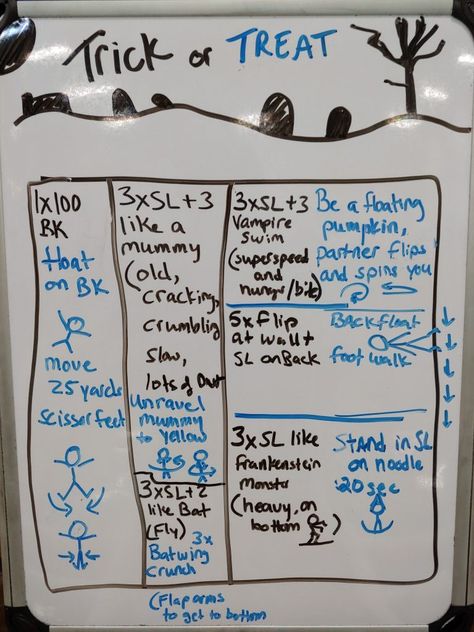 Trick or TREAT
1x100
BK
float
on BK
move
25 yards
scissor feet
3xSL+3
like a
mummy
(old,
cracking,
crumbling
slow,
lots of
Unravel
mummy
to yellow
3xSL+2
like Bat
(Fly) 3x
Batwing
crunch
(Flap arms
to get to bottom
3xSL+3
Vampire
Swim
(superspeed
and
hunger/bite)
Be a floating
pumpkin,
partner flips
and spins you
5x flip
at wall +
SL on Back
Backfloat
foot walk
3xSL like
Frankenstein
monster
(heavy, on
bottom )
Stand in SL
on noodle
20 sec